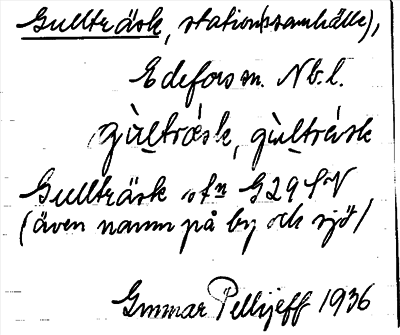 Gullträsk, station(ssamhälle),
Edefors sn. Nb.l.
gùltræsk, gùltrásk
Gullträsk stn G29 SV
(även namn på by och sjö)
Gunnar Pellijeff 1936